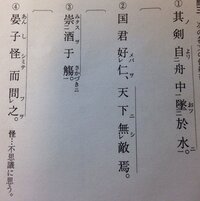 ① 其剣自舟中墜於水。
② 国君好仁、天下無敵焉。
③ 崇酒于觴。
④ 晏子怪而問之。 怪…不思議に思う。